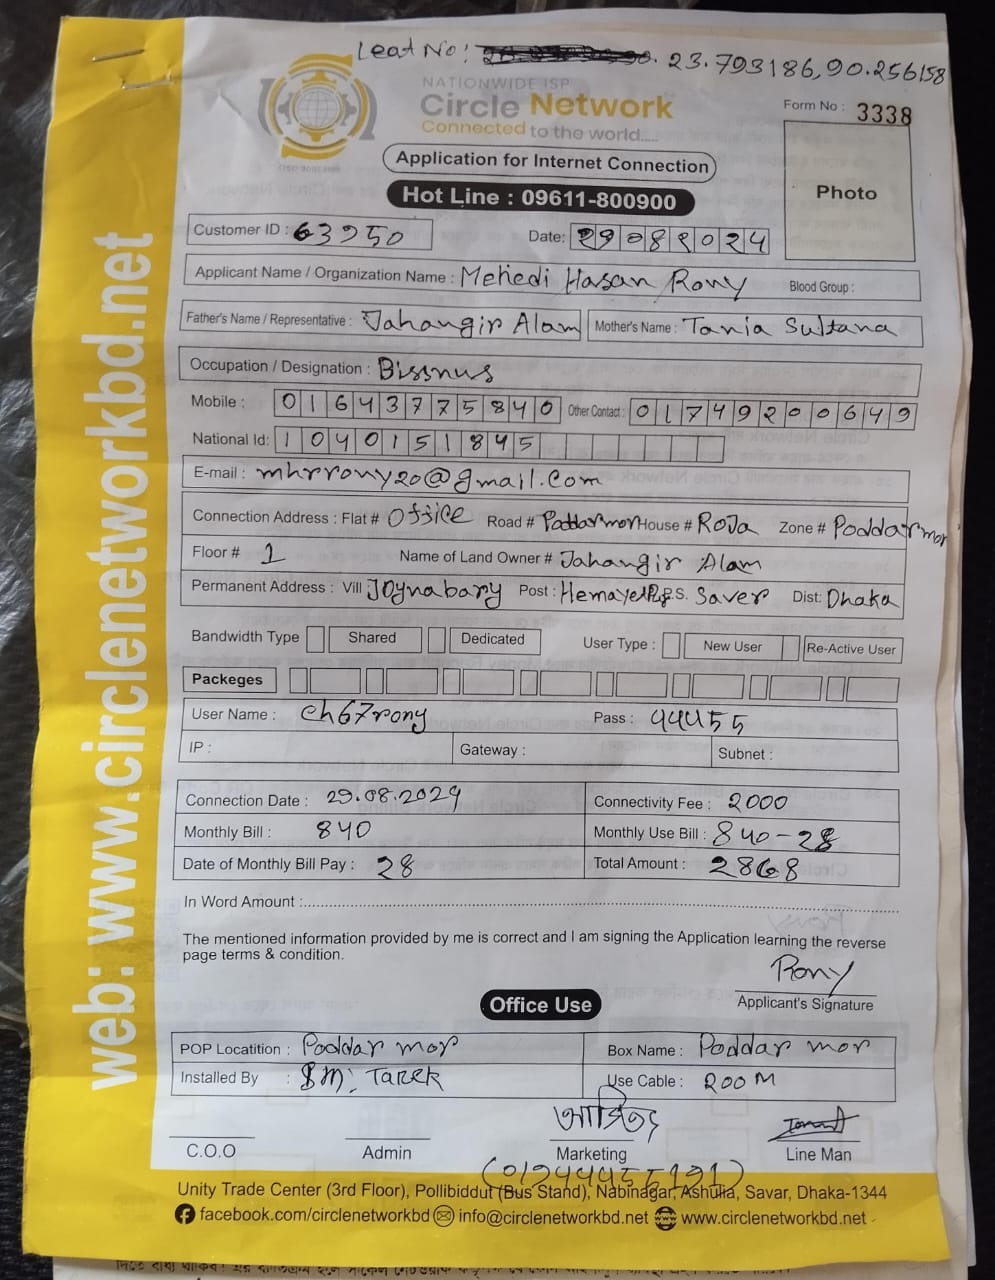 Leat No: 23.793186, 90.256158
NATIONWIDE ISP
Circle Network
Connected to the world.....
Form No : 3338
Application for Internet Connection
Photo
Hot Line : 09611-800900
Customer ID : 63950
Date: 29082024
Applicant Name / Organization Name : Mehedi Hasan Rony Blood Group :
Father's Name / Representative : Jahangir Alam Mother's Name : Tania Sultana
Occupation / Designation : Bissnus
Mobile : 01643775840 Other Contact : 01749200649
National Id: 1040151845
E-mail : mhrrony20@gmail.com
Connection Address : Flat # Office Road # Poddarmor House # Roja Zone # Poddarmor
Floor # 1 Name of Land Owner # Jahangir Alam
Permanent Address : Vill Joynabary Post : P.S. Saver Dist: Dhaka
Bandwidth Type Shared Dedicated User Type : New User Re-Active User
Packeges
User Name : Ch67rony Pass : 44455
IP : Gateway : Subnet :
Connection Date : 29.08.2024 Connectivity Fee : 2000
Monthly Bill : 840 Monthly Use Bill : 840-28
Date of Monthly Bill Pay : 28 Total Amount : 2868
In Word Amount :
The mentioned information provided by me is correct and I am signing the Application learning the reverse
page terms & condition.
Rony
Applicant's Signature
Office Use
POP Locatition : Poddar mor Box Name : Poddar mor
Installed By : SM. Tarek Use Cable : 200 M
C.O.O Admin Marketing Line Man
Unity Trade Center (3rd Floor), Pollibiddut (Bus Stand), Nabinagar, Ashulia, Savar, Dhaka-1344
facebook.com/circlenetworkbd info@circlenetworkbd.net www.circlenetworkbd.net
web: www.circlenetworkbd.net